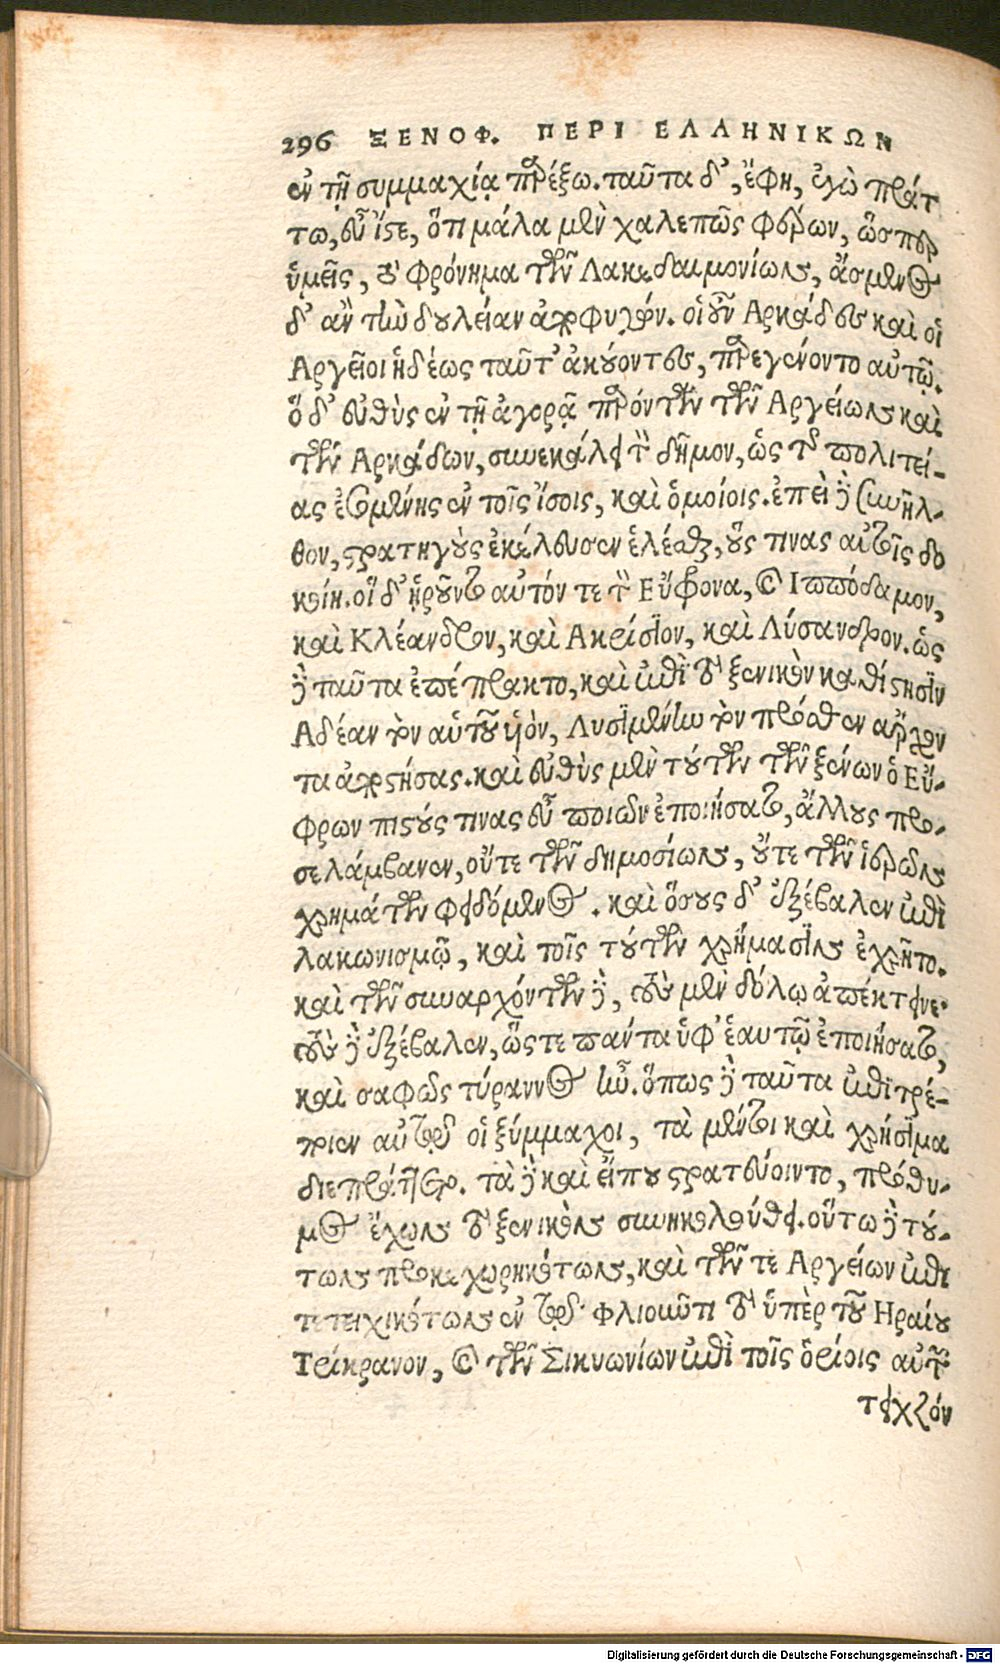 296 ΞΕΝΟΦ. ΠΕΡΙ ΕΛΛΗΝΙΚΩΝ
ἐν τῇ συμμαχίᾳ παρέξω. ταῦτα δ᾽, ἔφη, ἐγὼ πράτ
τω, εὖ ἴστε, ὅτι μάλα μὲν χαλεπῶς φέρων, ὥσπερ
ὑμεῖς, τὸ φρόνημα τῶν Λακεδαιμονίων, ἄσμενος
δ᾽ ἂν τὴν δουλείαν ἀποφυγών. οἱ οὖν Αρκάδες καὶ οἱ
Αργεῖοι ἡδέως ταῦτ᾽ ἀκούοντες, παρεγένοντο αὐτῷ.
ὁ δ᾽ εὐθὺς ἐν τῇ ἀγορᾷ παρόντων τῶν Αργείων καὶ
τῶν Αρκάδων, συνεκάλει τὸν δῆμον, ὡς τῆς πολιτεί-
ας ἐσομένης ἐν τοῖς ἴσοις, καὶ ὁμοίοις. ἐπεὶ δὲ συνῆλ-
θον, στρατηγοὺς ἐκέλευσεν ἑλέσθαι, οὕς τινας αὐτοῖς δο
κοίη. οἳ δ᾽ ᾑροῦνται αὐτόν τε τὸν Εὔφρονα, καὶ Ιππόδαμον,
καὶ Κλέανδρον, καὶ Ακρίσιον, καὶ Λύσανδρον. ὡς
δὲ ταῦτα ἐπέπρακτο, καὶ ἐπὶ τὸ ξενικὸν καθίστησιν
Αδέαν τὸν αὑτοῦ υἱὸν, Λυσιμένην τὸν πρόσθεν ἄρχον
τα ἀποστήσας. καὶ εὐθὺς μὲν τούτων τῶν ξένων ὁ Εὔ-
φρων πιστούς τινας εὖ ποιῶν ἐποιήσατο, ἄλλους προ-
σελάμβανεν, οὔτε τῶν δημοσίων, οὔτε τῶν ἱερῶν
χρημάτων φειδόμενος. καὶ ὅσους δ᾽ ἐξέβαλεν ἐπὶ
λακωνισμῷ, καὶ τοῖς τούτων χρήμασιν ἐχρῆτο.
καὶ τῶν συναρχόντων δὲ, τοὺς μὲν δόλῳ ἀπέκτεινε·
τοὺς δὲ ἐξέβαλεν, ὥστε πάντα ὑφ᾽ ἑαυτῷ ἐποιήσατο,
καὶ σαφῶς τύραννος ἦν. ὅπως δὲ ταῦτα ἐπιτρέ-
ποιεν αὐτῷ οἱ ξύμμαχοι, τὰ μέν τοι καὶ χρήσιμα
διεπράττετο. τὰ δὲ καὶ εἴπου στρατεύοιντο, πρόθυ-
μος ἔχων τὸ ξενικὸν συνηκολούθει. οὕτω δὲ τού-
των προκεχωρηκότων, καὶ τῶν τε Αργείων ἐπι
τετειχικότων ἐν τῷ Φλιοῦντι τὸ ὑπὲρ τοῦ Ηραίου
Τρίκρανον, καὶ τῶν Σικυωνίων ἐπὶ τοῖς ὁρίοις αὐτῶν
τειχιζόν
Digitalisierung gefördert durch die Deutsche Forschungsgemeinschaft - DFG